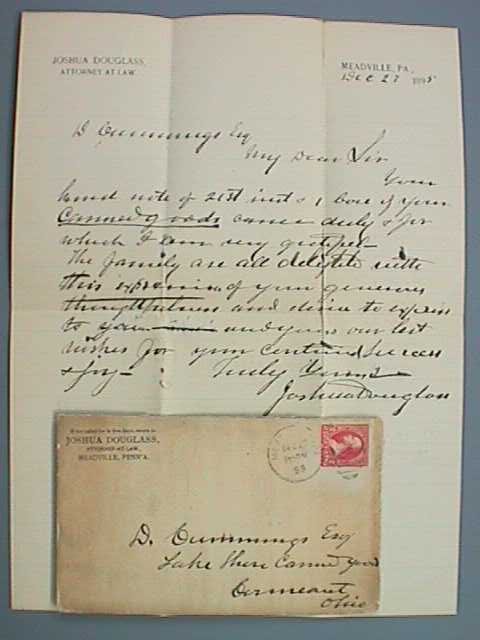 JOSHUA DOUGLASS,
ATTORNEY AT LAW.
MEADVILLE, PA., Dec 27 1895
D Cummings Esq
My Dear Sir
Your
kind note of 21st inst & 1 box of your
Canned goods came duly & for
which I am very grateful
The family are all delighted with
this expression of your generous
thoughtfulness and desire to express
to you and yours our best
wishes for your continued success
& joy –
Truly Yours
Joshua Douglass
If not called for in five days, return to
JOSHUA DOUGLASS,
ATTORNEY AT LAW,
MEADVILLE, PENN'A.
D. Cummings Esq
Lake Shore Canned Goods
Ohio